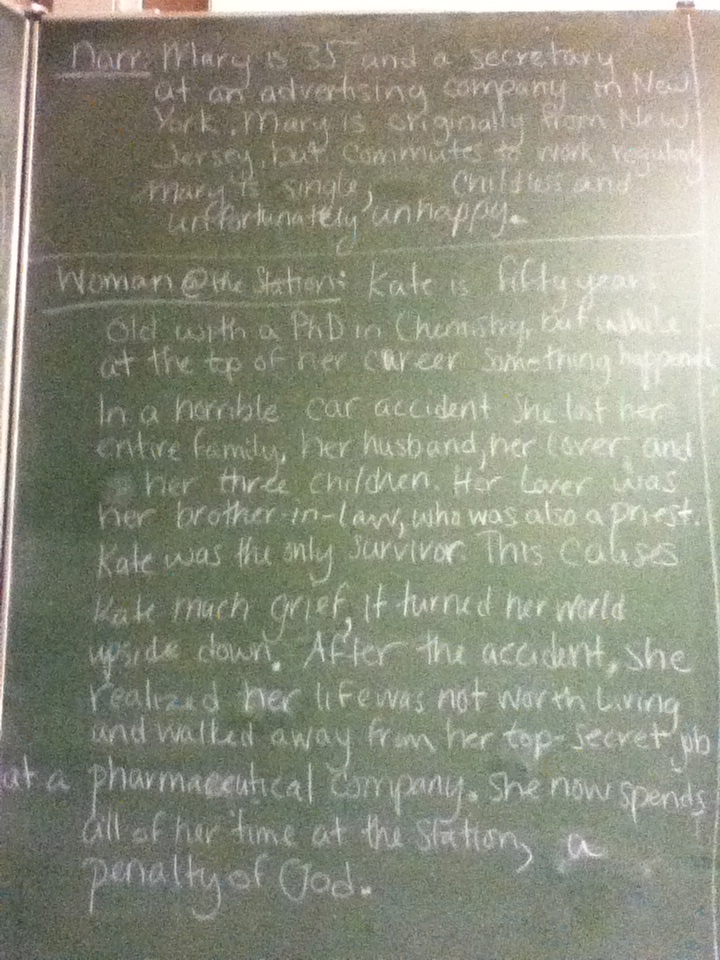 Narr: Mary is 35 and a secretary
at an advertising company in New
York. Mary is originally from New
Jersey, but commutes to work regularly
Mary is single, Childless and
unfortunately unhappy.
Woman @ the Station: Kate is fifty years
old with a PhD in Chemistry, but while
at the top of her career something happened
In a horrible car accident she lost her
entire family, her husband, her lover and
her three children. Her lover was
her brother-in-law, who was also a priest.
Kate was the only survivor. This causes
Kate much grief, it turned her world
upside down. After the accident, she
realized her life was not worth living
and walked away from her top-secret job
at a pharmaceutical company. She now spends
all of her time at the station, a
penalty of God.